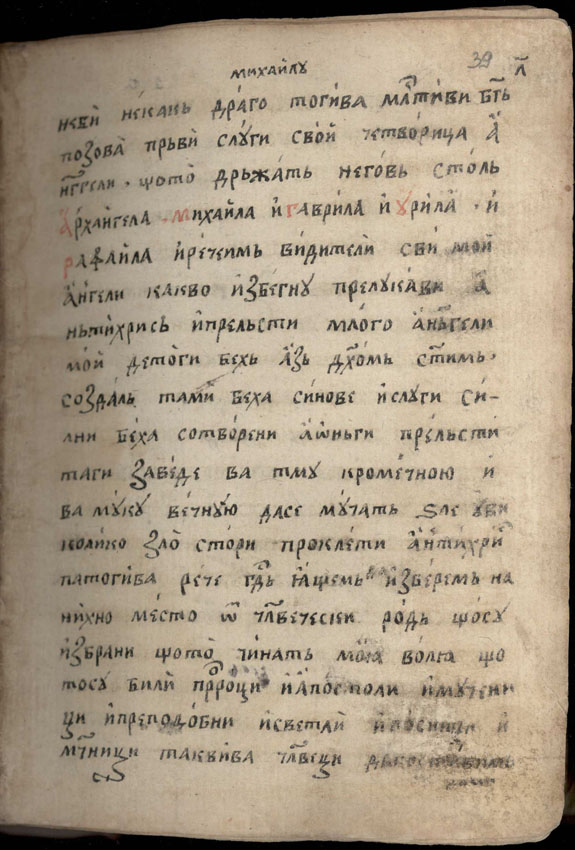 михайлꙋ 39 л҃
неѝ некань дра́го тоги́ва мл҃тиви бг҃ь
позова̀ прьвѝ слꙋ́ги своѝ четвори́ца а҆̀
нг҃гели · щото̀ дрьжа́ть него́вь сто́ль
а҆рха́нгела · михаи́ла и҆ гаври́ла и҆ ꙋ҆ри́ла · и҆
рафаи́ла и҆ре́чеимь ви́дители сви̏ мой
а҆́нгели какво и҆збе́гнꙋ прелꙋка́ви а҆̀
ньти́хрись и҆пре́льсти мло́го а҆́ньгели
мо́й дето́ги бехь а҆́зь дх҃омь ст҃имь ·
созда́ль тами бе́ха си́нове и҆слꙋги си́-
лни бе́ха сотво́рени а҆ѡ́ньги пре́льсти
таги заве́де ва тмꙋ кроме́чною и҆
ва мꙋ́кꙋ ве́чнꙋю дасе мꙋ́чать ѕле ꙋ҆би
коли́ко зло̀ сто́ри прокле́ти а҆́нтихри́
патоги́ва ре́че гд҃ь и҆збе́ремь на
ни́хно ме́сто ѿ чл҃ве́чески ро́дь щосꙋ
и҆збрани щото̀ чи́нать моа̀ во́лю що
тосꙋ били̏ пр҃роци и҆а҆посто́ли и҆мꙋ́чени
ци и҆преподо́бни и҆светлѝ и҆
мч҃ници такви́ва чл҃веци